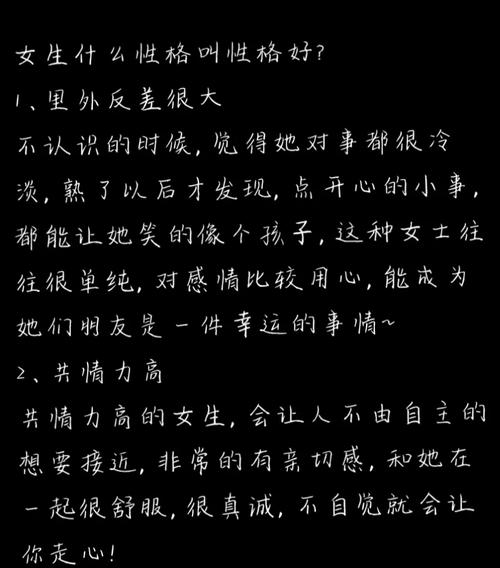 女生什么性格叫性格好?
1、里外反差很大
不认识的时候,觉得她对事都很冷
淡,熟了以后才发现,点开心的小事,
都能让她笑的像个孩子,这种女士往
往很单纯,对感情比较用心,能成为
她们朋友是一件幸运的事情~
2、共情力高
共情力高的女生,会让人不由自主的
想要接近,非常的有亲切感,和她在
一起很舒服,很真诚,不自觉就会让
你走心!